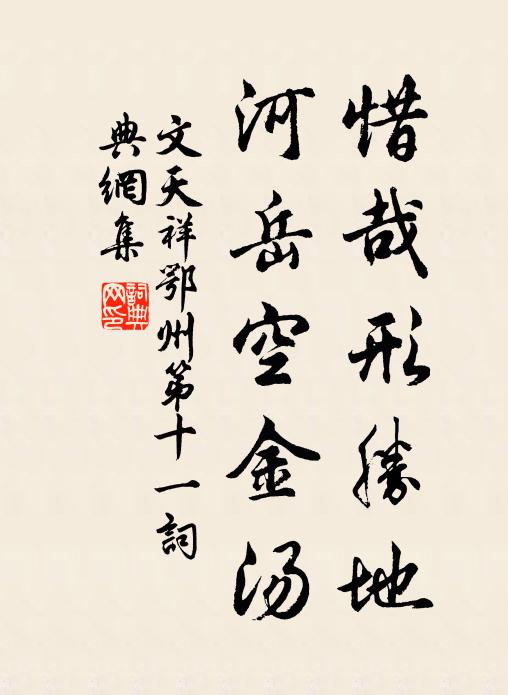 惜哉形勝地
河岳空金汤
文天祥鄂州第十一詞
典網集
詞典
网印